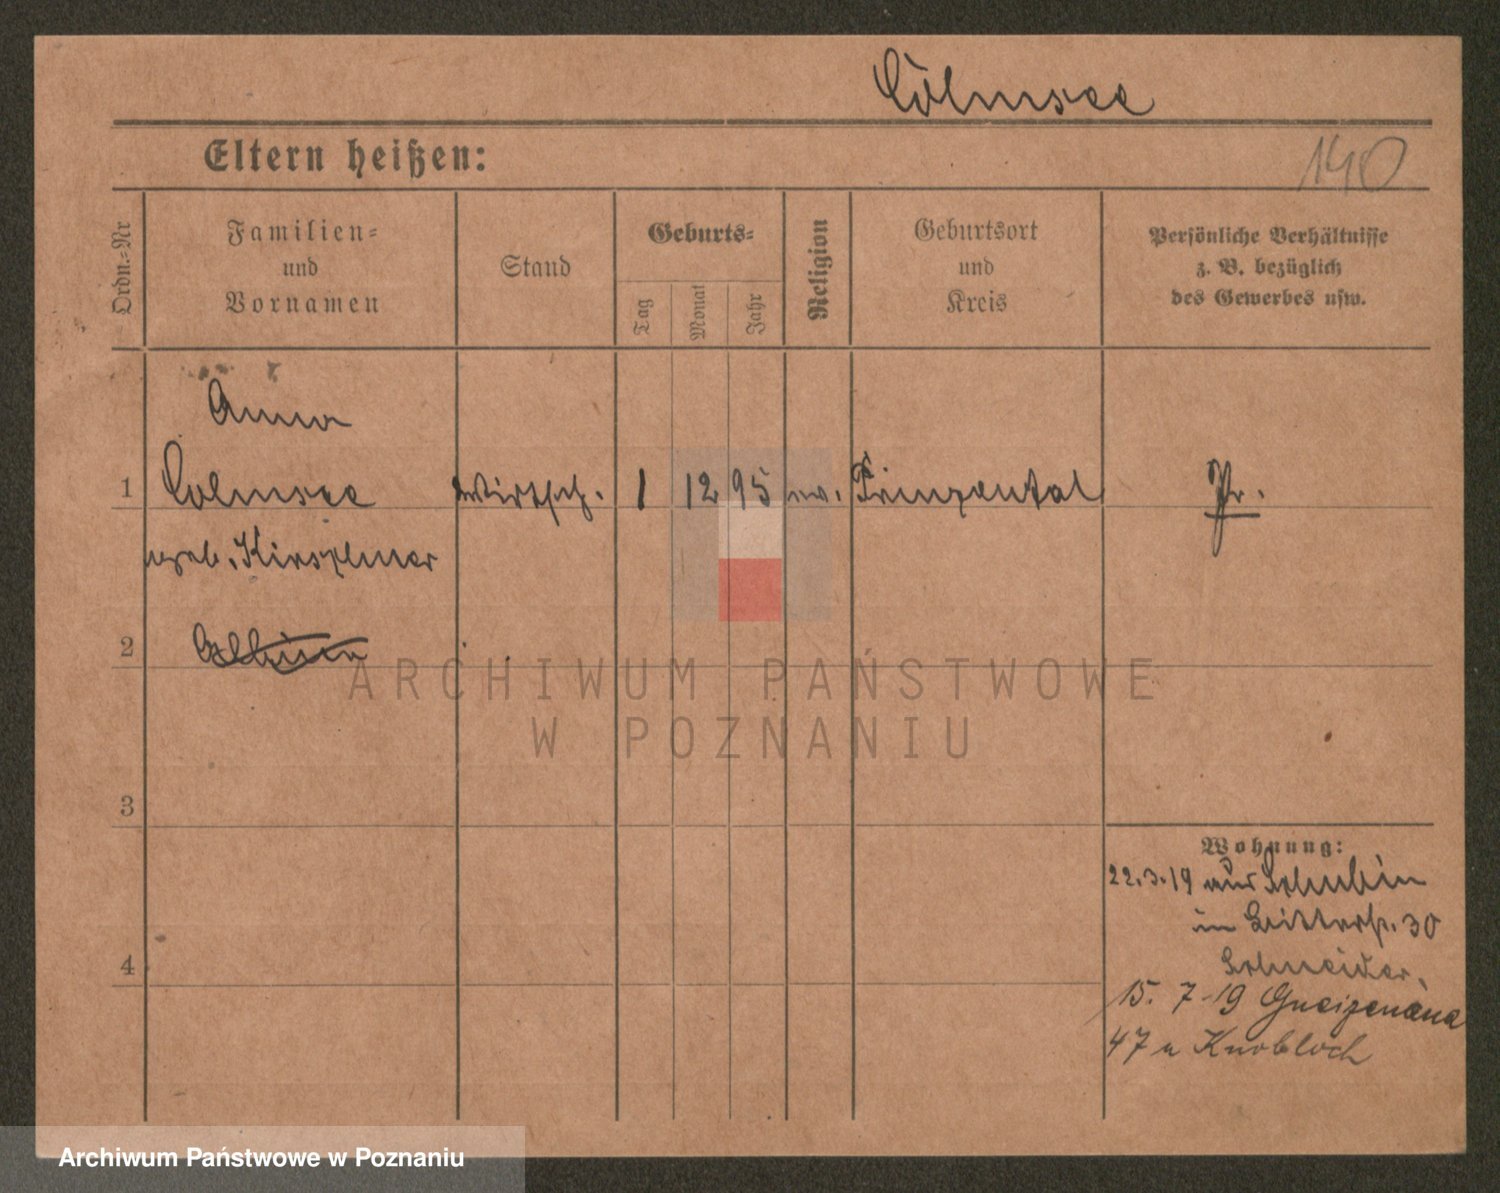 Cölmsee
Eltern heißen:
140
Ordn.-Nr
Familien-
und
Vornamen
Stand
Geburts-
Tag
Monat
Jahr
Religion
Geburtsort
und
Kreis
Persönliche Verhältnisse
z. B. bezüglich
des Gewerbes usw.
Anna
1 Cölmsee Wirtsch. 1 12 95 ev. Prinzental Pr.
geb. Kirschner
2
3
4
Wohnung:
22.3.19 aus Schubin
in 30
Schneider.
15. 7-19 Gneizenana
47 u Knobloch
ARCHIWUM PAŃSTWOWE
W POZNANIU
Archiwum Państwowe w Poznaniu